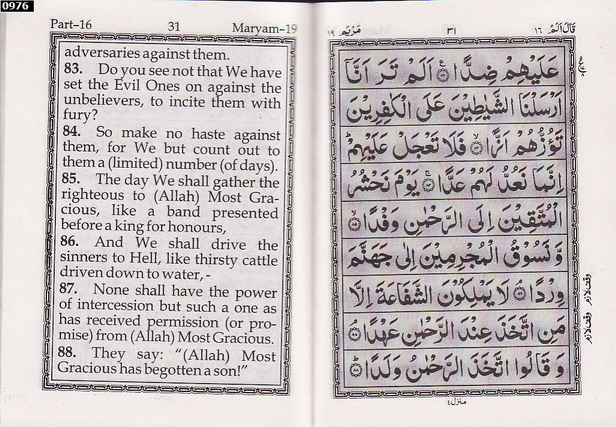 0976
Part-16 31 Maryam-19
adversaries against them.
83. Do you see not that We have
set the Evil Ones on against the
unbelievers, to incite them with
fury?
84. So make no haste against
them, for We but count out to
them a (limited) number (of days).
85. The day We shall gather the
righteous to (Allah) Most Gra-
cious, like a band presented
before a king for honours,
86. And We shall drive the
sinners to Hell, like thirsty cattle
driven down to water, -
87. None shall have the power
of intercession but such a one as
has received permission (or pro-
mise) from (Allah) Most Gracious.
88. They say: “(Allah) Most
Gracious has begotten a son!”
قَالَ اَلَمْ ١٦ ٣١ مَرْيَم ١٩
عَلَيْهِمْ ضِدًّا ۝ اَلَمْ تَرَ اَنَّآ
اَرْسَلْنَا الشَّيٰطِيْنَ عَلَى الْكٰفِرِيْنَ
تَؤُزُّهُمْ اَزًّا ۝ فَلَا تَعْجَلْ عَلَيْهِمْ ؕ
اِنَّمَا نَعُدُّ لَهُمْ عَدًّا ۝ يَوْمَ نَحْشُرُ
الْمُتَّقِيْنَ اِلَى الرَّحْمٰنِ وَفْدًا ۝
وَّ نَسُوْقُ الْمُجْرِمِيْنَ اِلٰى جَهَنَّمَ
وِرْدًا ۝ لَا يَمْلِكُوْنَ الشَّفَاعَةَ اِلَّا
مَنِ اتَّخَذَ عِنْدَ الرَّحْمٰنِ عَهْدًا ۝
وَ قَالُوا اتَّخَذَ الرَّحْمٰنُ وَلَدًا ۝
وقف لازم
وقف لازم
منزل ٤